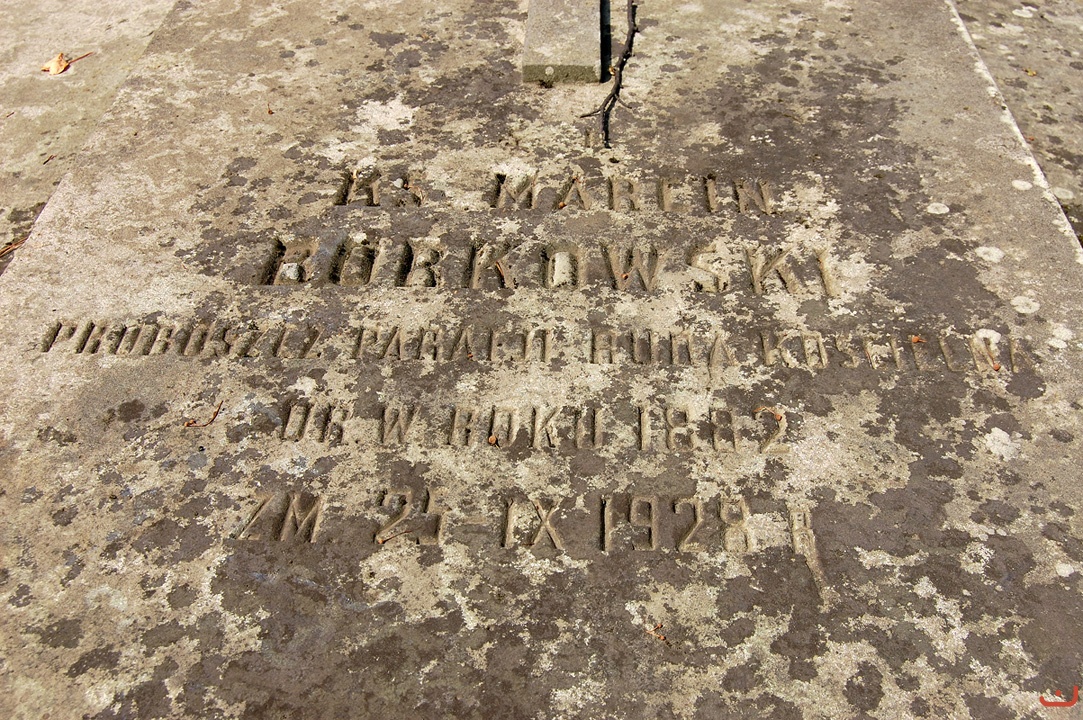 KS MARCIN
BOBKOWSKI
PROBOSZCZ PARAFII RUDA KOŚCIELNA
OD W ROKU 1882
ZM 25 IX 1928 R